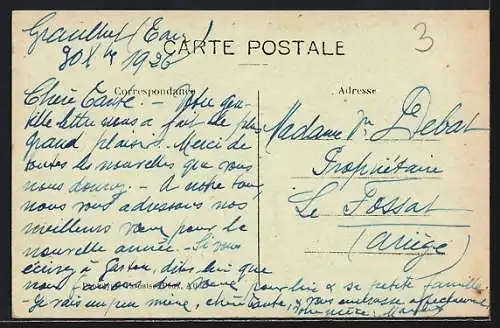 (Eure)
1926
CARTE POSTALE
3
Correspondance
Adresse
Chère Tante. - Votre gen-
tille lettre nous a fait le plus
grand plaisir. Merci de
toutes les nouvelles que vous
nous donnez. - A notre tour,
nous vous adressons nos
meilleurs vœux pour la
nouvelle année. - Si vous
écrivez à Gaston, dites lui que
nous pour lui & sa petite famille
- Je vais un peu mieux, chère tante, & vous embrasse affectueusement
Madame Vve Debat
Propriétaire
Le Fossat
(Ariège)